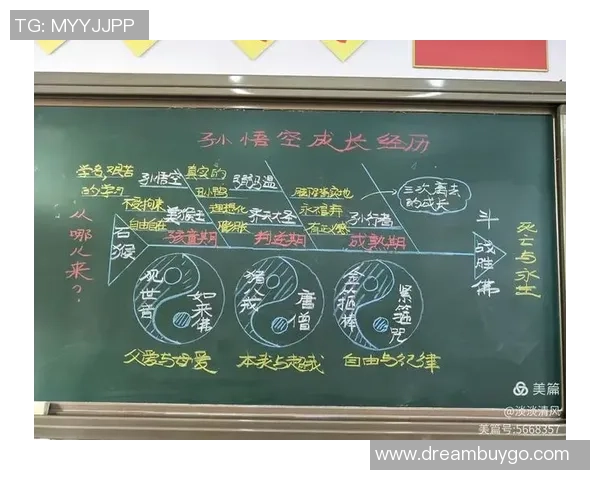 TG: MYYJJPP
孙悟空成长经历
学习,艰苦
的学习
孙悟空
真实的
弼马温
脚踏实地
三次离去
的成长
不受拘束
自由自在
美猴王
理想化
齐天大圣
永不言弃
孙行者
从哪儿来?
石猴
孩童期
叛逆期
成熟期
斗战胜佛
死亡与永生
观世音
如来佛
猪八戒
唐僧
金箍棒
紧箍咒
父爱与母爱
本我与超我
自由与纪律
美篇
@淡淡清风
美篇号:5668357
www.dreambuygo.com